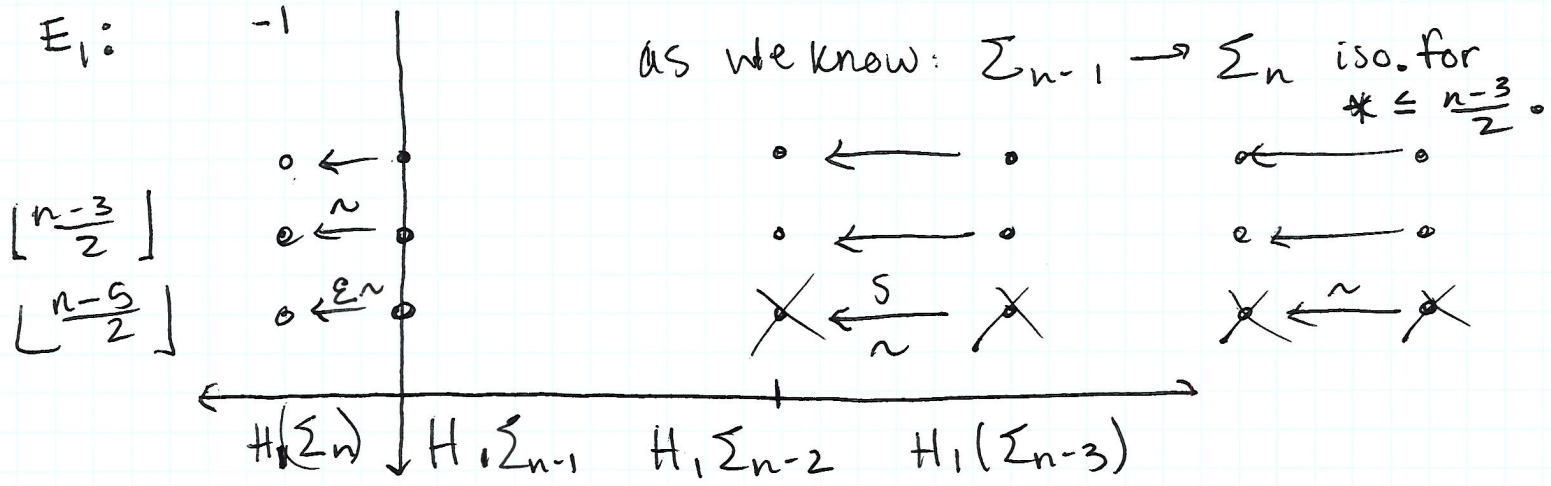 E₁: -1 as we know: Σₙ₋₁ → Σₙ iso. for
* ≤ n-3/2 .
⌊n-3/2⌋ ~
⌊n-5/2⌋ ε~ S ~ ~
H₁(Σₙ) H₁Σₙ₋₁ H₁Σₙ₋₂ H₁(Σₙ₋₃)